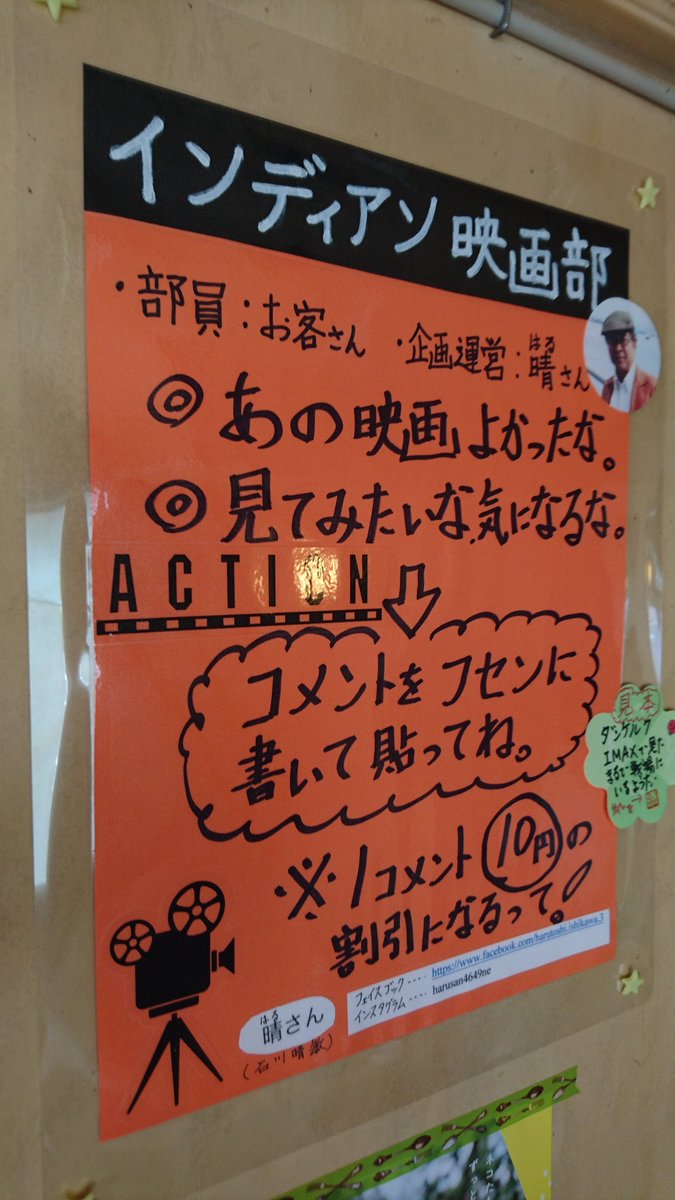 インディアン映画部
・部員：お客さん ・企画運営：晴さん
はる
◎あの映画よかったな。
◎見てみたいな、気になるな。
ACTION
コメントをフセンに
書いて貼ってね。
見本
ダンケルク
IMAXで見た
まるで戦場に
いるようだ
※1コメント10円の
割引になるって！
フェイスブック‥‥ https://www.facebook.com/harutoshi.ishikawa.3
インスタグラム‥‥ harusan4649ne
はる
晴さん
(石川晴敏)
ネコた
ずっと